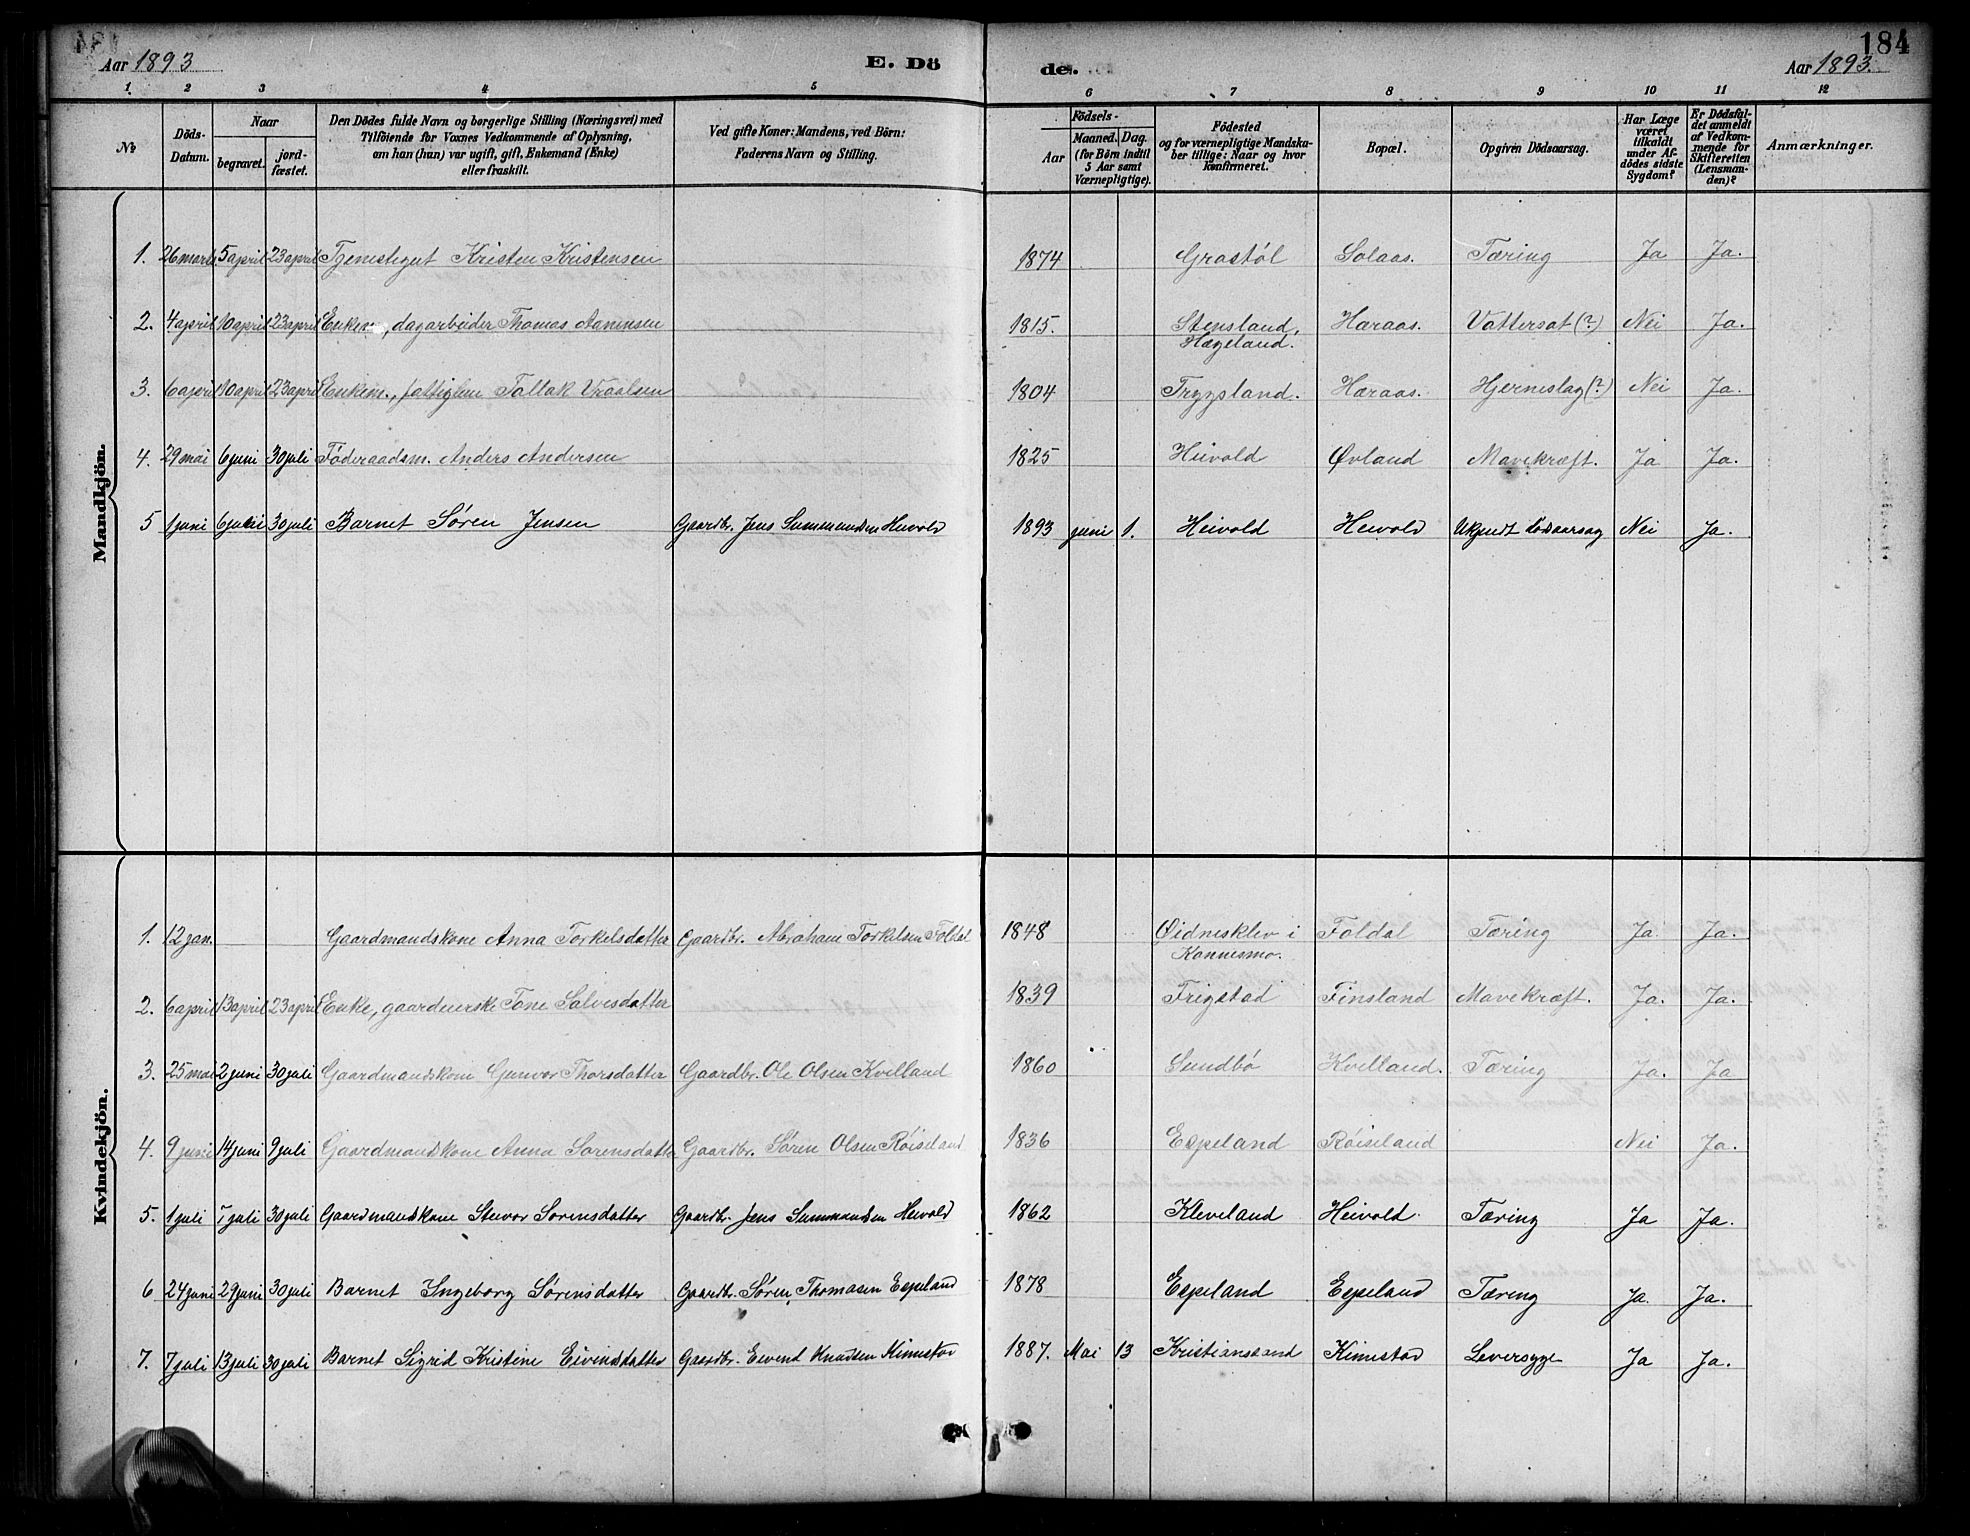 184
Aar 1893 E. Dö de. Aar 1893.
1 2 3 4 5 6 7 8 9 10 11 12
№
Döds-Datum.
Naar
begravet.
jord-fæstet.
Den Dödes fulde Navn og borgerlige Stilling (Næringsvei) med
Tilföiende for Voxnes Vedkommende af Oplysning,
om han (hun) var ugift, gift, Enkemand (Enke)
eller fraskilt.
Ved gifte Koner: Mandens, ved Börn:
Faderens Navn og Stilling.
Födsels-
Aar
Maaned. Dag.
(for Börn indtil
5 Aar samt
Værnepligtige).
Födested
og for værnepligtige Mandska-
ber tillige: Naar og hvor
konfirmeret.
Bopæl.
Opgiven Dödsaarsag.
Har Læge
været
tilkaldt
under Af-
dödes sidste
Sygdom?
Er Dödsfal-
det anmeldt
af Vedkom-
mende for
Skifteretten
(Lensman-
den)?
Anmærkninger.
Mandkjön.
1. 26 marts 5 april 23 april Tjenestegut Kristen Kristensen 1874 Grostøl Solaas. Tæring Ja Ja.
2. 4 april 10 april 23 april Enkem., dagarbeider Thomas Aanensen 1815. Stensland, Hæraas. Vattersot (?) Nei Ja.
Hægeland.
3. 6 april 10 april 23 april Enkem., fattiglem Tallak Vraalsen 1804 Trygsland. Hæraas. Hjerneslag (?) Nei Ja.
4. 29 mai 6 juni 30 juli Føderaadsm. Anders Andersen 1825 Heivold Øvland Mavekræft. Ja Ja.
5 1 juni 6 juli 30 juli Barnet Søren Jensen Gaardbr. Jens Summundsen Heivold 1893 juni 1. Heivold Heivold Ukjendt Dødsaarsag Nei Ja.
Kvindekjön.
1. 12 jan. Gaardmandskone Anna Torkelsdatter Gaardbr. Abraham Torkelsen Foldal 1848 Øidnesklev i Foldal Tæring Ja Ja.
Konnesmo.
2. 6 april 13 april 23 april Enke, gaardeierske Tone Salvesdatter 1839 Frigstad Finsland Mavekræft. Ja. Ja.
3. 25 mai 2 juni 30 juli Gaardmandskone Gunvor Thorsdatter Gaardbr. Ole Olsen Kvelland 1860 Sundbø Kvelland. Tæring Ja. Ja
4. 9 juni 14 juni 9 juli Gaardmandskone Anna Sørensdatter Gaardbr. Søren Olsen Røiseland 1836 Espeland Røiseland Nei Ja.
5. 1 juli 7 juli 30 juli Gaardmandskone Steivor Sørensdatter Gaardbr. Jens Summundsen Heivold 1862 Kleveland Heivold. Tæring Ja Ja.
6 24 juni 29 juni 30 juli Barnet Ingeborg Sørensdatter Gaardbr. Søren Thomasen Espeland 1878 Espeland Espeland Tæring Ja. Ja.
7. 7 juli 13 juli 30 juli Barnet Sigrid Kristine Eivindsdatter Gaardbr. Eivend Knudsen Kimestad 1887. Mai 13 Kristianssand Kimestad Leversyge Ja Ja.